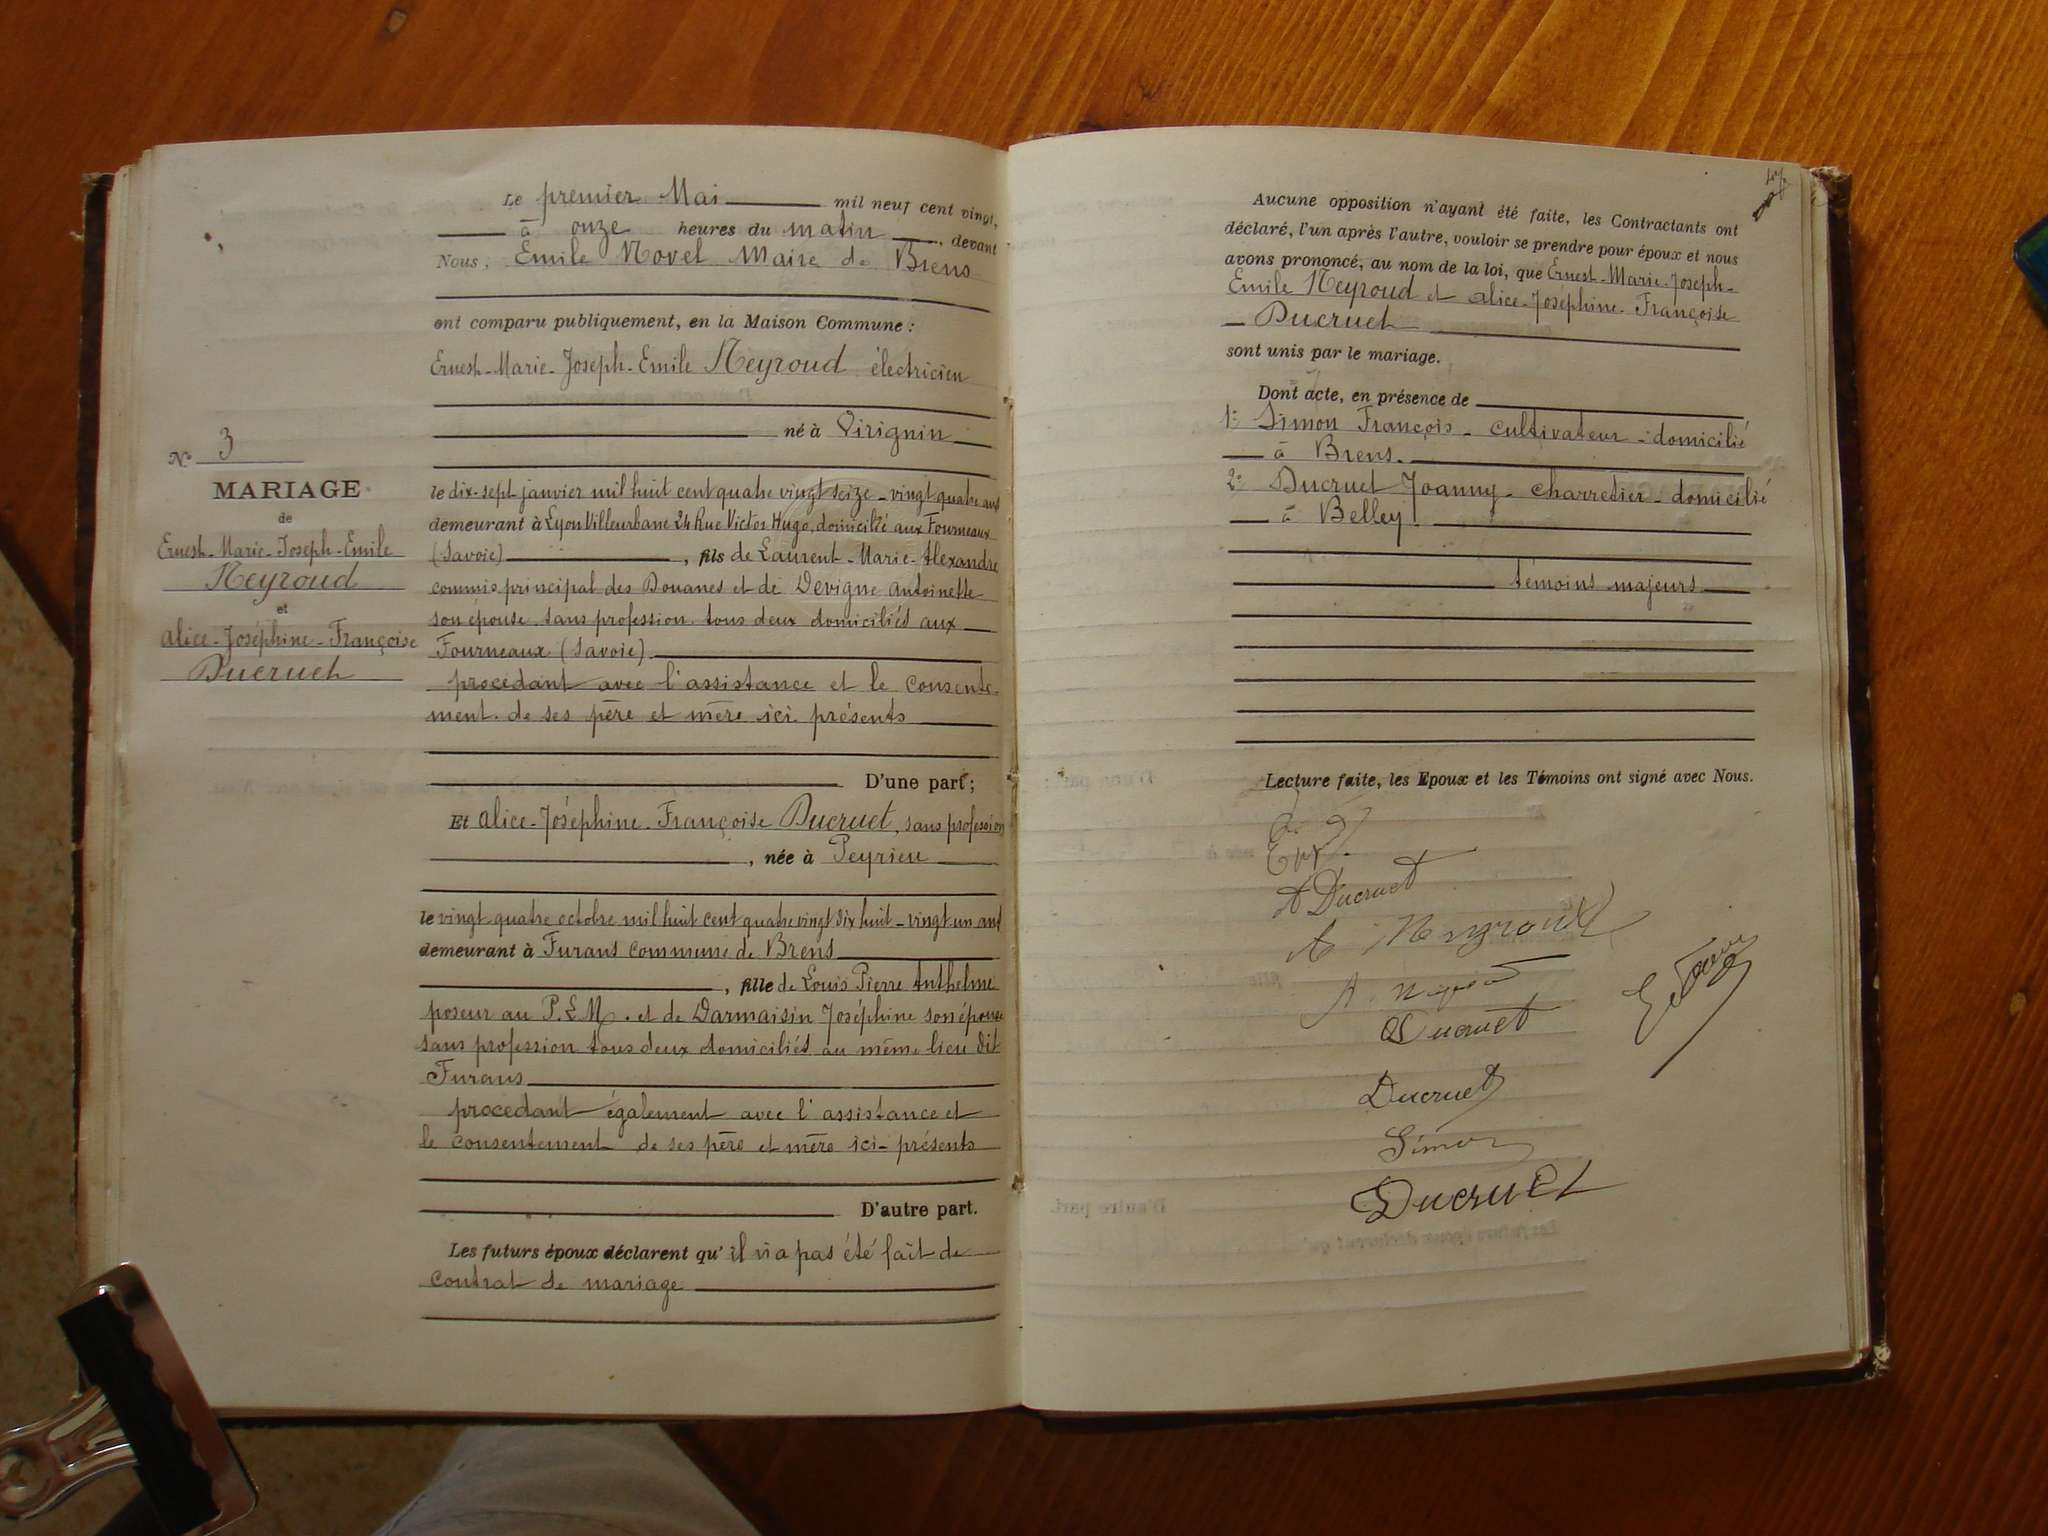 Le premier Mai mil neuf cent vingt,
à onze heures du matin, devant
Nous, Emile Novel Maire de Brens
ont comparu publiquement, en la Maison Commune :
Ernest-Marie-Joseph-Emile Neyroud électricien
né à Virignin
N° 3
MARIAGE
de
Ernest-Marie-Joseph-Emile
Neyroud
et
Alice-Joséphine-Françoise
Ducruet
le dix-sept janvier mil huit cent quatre vingt seize - vingt quatre ans
demeurant à Lyon Villeurbane 24 Rue Victor Hugo, domicilié aux Fourneaux
(Savoie), fils de Laurent-Marie-Alexandre
commis principal des Douanes et de Devigne Antoinette
son épouse sans profession tous deux domiciliés aux
Fourneaux (Savoie)
procédant avec l'assistance et le consente-
ment de ses père et mère ici présents
D'une part ;
Et Alice-Joséphine-Françoise Ducruet, sans profession
, née à Peyrieu
le vingt quatre octobre mil huit cent quatre vingt dix huit - vingt un ans
demeurant à Furans commune de Brens
, fille de Louis Pierre Anthelme
poseur au P.L.M. et de Darmaisin Joséphine son épouse
sans profession tous deux domiciliés au même lieu dit
Furans
procédant également avec l'assistance et
le consentement de ses père et mère ici-présents
D'autre part.
Les futurs époux déclarent qu'il n'a pas été fait de
contrat de mariage
Aucune opposition n'ayant été faite, les Contractants ont
déclaré, l'un après l'autre, vouloir se prendre pour époux et nous
avons prononcé, au nom de la loi, que Ernest-Marie-Joseph-
Emile Neyroud et Alice-Joséphine-Françoise
Ducruet
sont unis par le mariage.
Dont acte, en présence de
1° Simon François - cultivateur - domicilié
à Brens.
2° Ducruet Joanny - charretier - domicilié
à Belley.
témoins majeurs
Lecture faite, les Epoux et les Témoins ont signé avec Nous.
A Ducruet
A Neyroud
Ducruet
Ducruet
Simon
Ducruet